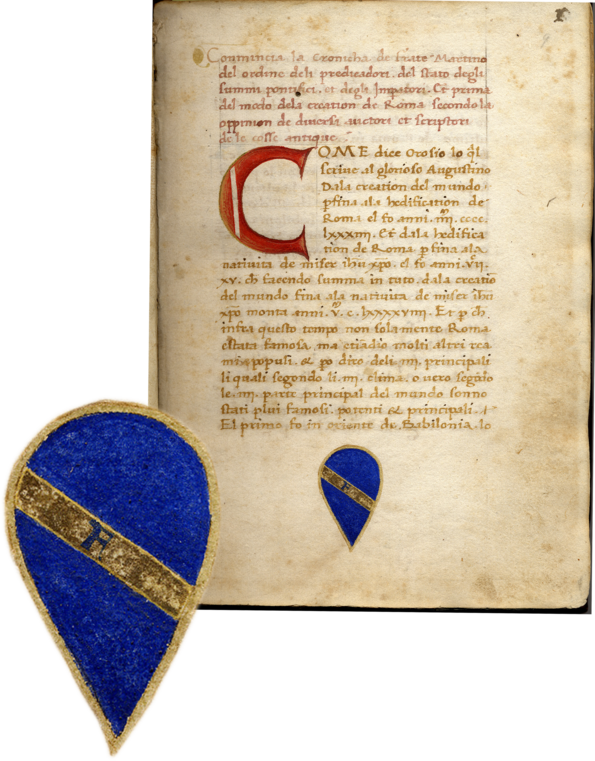 Comincia la Cronicha de frate Martino
del ordine deli predicadori. del stato degli
summi pontifici. et degli Imperatori. Et prima
del modo dela creation de Roma secondo la
oppinion de diversi auctori et scriptori
de le cosse antique.
COME dice Orosio lo q̃l
scrive al glorioso Augustino
Dala creation del mundo
ꝑfina ala hedification de
Roma el fo anni. cccc.
lxxxiiii. Et dala hedifica
tion de Roma ꝑ fina ala
nativita de miser ihũ xp̃o. el fo anni. vii.
xv. ch̃ facendo summa in tuto. dala creatiõ
del mundo fina ala nativita de miser ihũ
xp̃o monta anni. v̄. c. lxxxxviiii. Et ꝑ ch̃
infra questo tempo non solamente Roma
e stata famosa. ma etiãdio molti altri rea
mi & populi. & ꝑo diro deli .iiii. principali
li quali segondo li .iiii. clima. o vero segõdo
le .iiii. parte principal del mundo sonno
stati plui famosi. potenti & principali.
El primo fo in oriente de Babilonia. lo
H